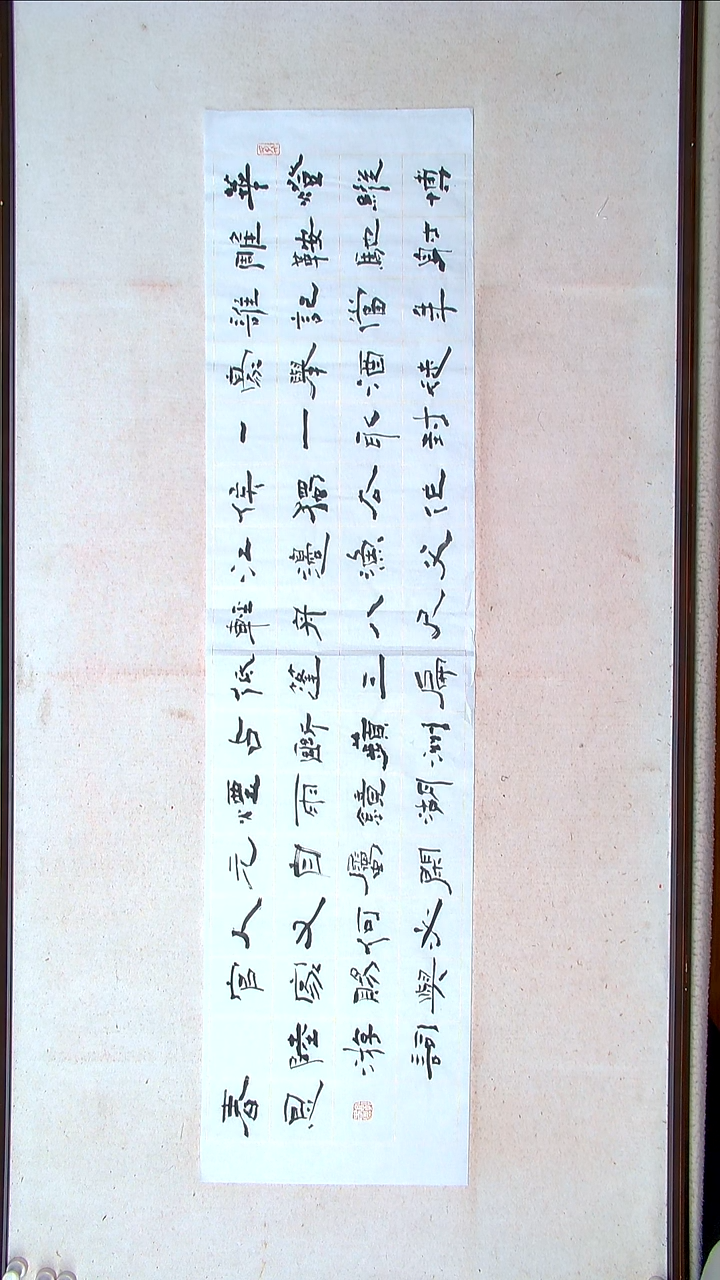 華燈縱博
雕鞍馳射
誰記當年
豪舉酒徒
一一取封
侯獨去作
江邊漁父
輕舟八尺
低篷三扇
占斷蘋洲
煙雨鏡湖
元自屬閑
人又何必
官家賜與
陸游詞
春